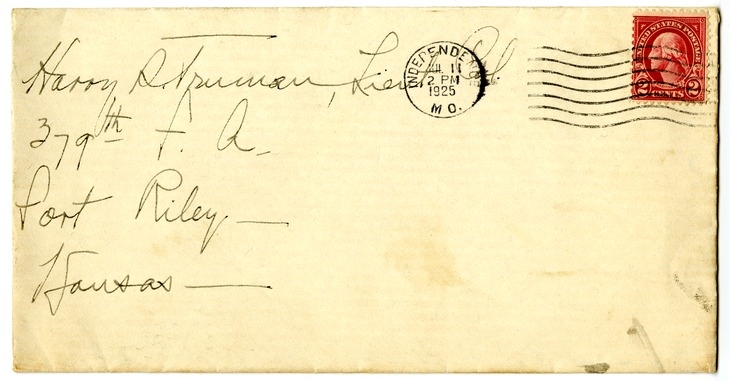 Harry S. Truman, Lieut Col.
379th F. A.
Fort Riley
Kansas
INDEPENDENCE
JUL 11
2 PM
1925
MO.
UNITED STATES POSTAGE
2 CENTS 2